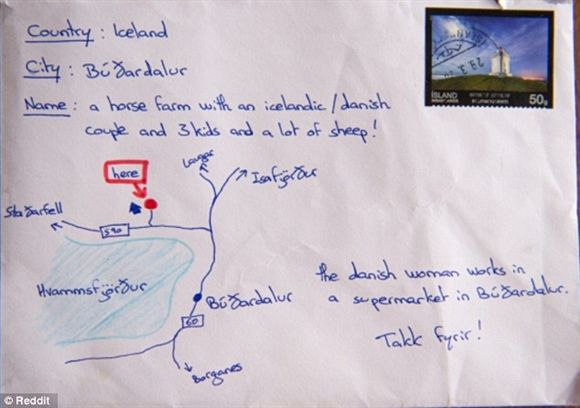 Country : Iceland
City : Búðardalur
Name : a horse farm with an icelandic/danish
couple and 3 kids and a lot of sheep!
ÍSLAND
50g
here
Laugar
Isafjörður
Staðarfell
590
Hvammsfjörður
Búðardalur
60
Borganes
the danish woman works in
a supermarket in Búðardalur.
Takk fyrir!
© Reddit